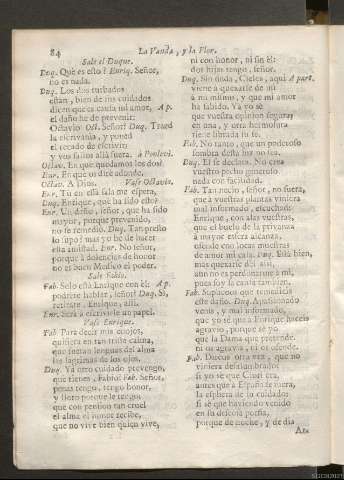 84 La Vanda, y la Flor.
Sale el Duque.
Duq. Què es esto? Enriq. Señor,
no es nada.
Duq. Los dos turbados
estàn, bien de mis cuidados
dicen que es causa mi amor, A p.
el daño he de prevenir:
Octavio. Oct. Señor? Duq. Traed
la escrivanìa, y poned
el recado de escrivir;
y vos salíos allà fuera. à Ponlevì.
Octav. En què quedamos los dos?
Enr. En que os dirè adonde.
Octav. A Dios. Vase Octavio.
Enr. Tù en essa sala me espera.
Duq. Enrique, què ha sido esto?
Enr. Un disgusto, señor, que ha sido
mayor, porque prevenido,
no se remedió. Duq. Tan presto
lo supo? mas yo he de hacer
esta amistad. Enr. No señor,
porque à dolencias de honor
no es buen Medico el poder.
Sale Fabio.
Fab. Solo està Enrique con èl: A p.
podrète hablar, señor? Duq. Sì,
retirate, Enrique, allì.
Enr. Serà à escrivirle un papel.
Vase Enrique.
Fab. Para decir mis enojos,
quisiera en tan triste calma,
que fueran lenguas del alma
las lagrimas de los ojos.
Duq. Yà otro cuidado prevengo,
què tienes, Fabio? Fab. Señor,
penas tengo, tengo honor,
y lloro porque le tengo;
que con pension tan cruel
el alma el honor recibe,
que no vive bien quien vive,
ni con honor, ni sin èl:
dos hijas tengo, señor.
Duq. Sin duda, Cielos, aqui A part.
viene à quexarse de mì
à mì mismo, y que mi amor
ha sabido. Yà yo sè
que vuestra opinion segura
en una, y otra hermosura
tiene librada su fe.
Fab. No tanto, que un poderoso
sombra desta luz no sea.
Duq. El se declara. No crea
vuestro pecho generoso
nada con facilidad.
Fab. Tan necio, señor, no fuera,
que à vuestras plantas viniera
mal informado, escuchad:
Enrique, con alas vuestras,
que el buelo de la privanza
à mayor esfera alcanza,
ofende con locas muestras
de amor mi casa. Duq. Està bien,
mas quexarse del assi,
aun no es perdonarme à mì,
pues soy la causa tambien.
Fab. Suplicoos que remedieis
este daño. Duq. Apassionado
venìs, y mal informado,
que yo sè que à Enrique haceis
agravio, porque sè yo
que la Dama que pretende,
ni os agravia, ni os ofende.
Fab. Ducus otra vez, que no
viniera deslumbrado:
si yo sè que Clori era,
antes que à España se fuera,
la esphera de su cuidado:
si sè que haviendo venido
en su desèo porfia,
porque de noche, y de dia